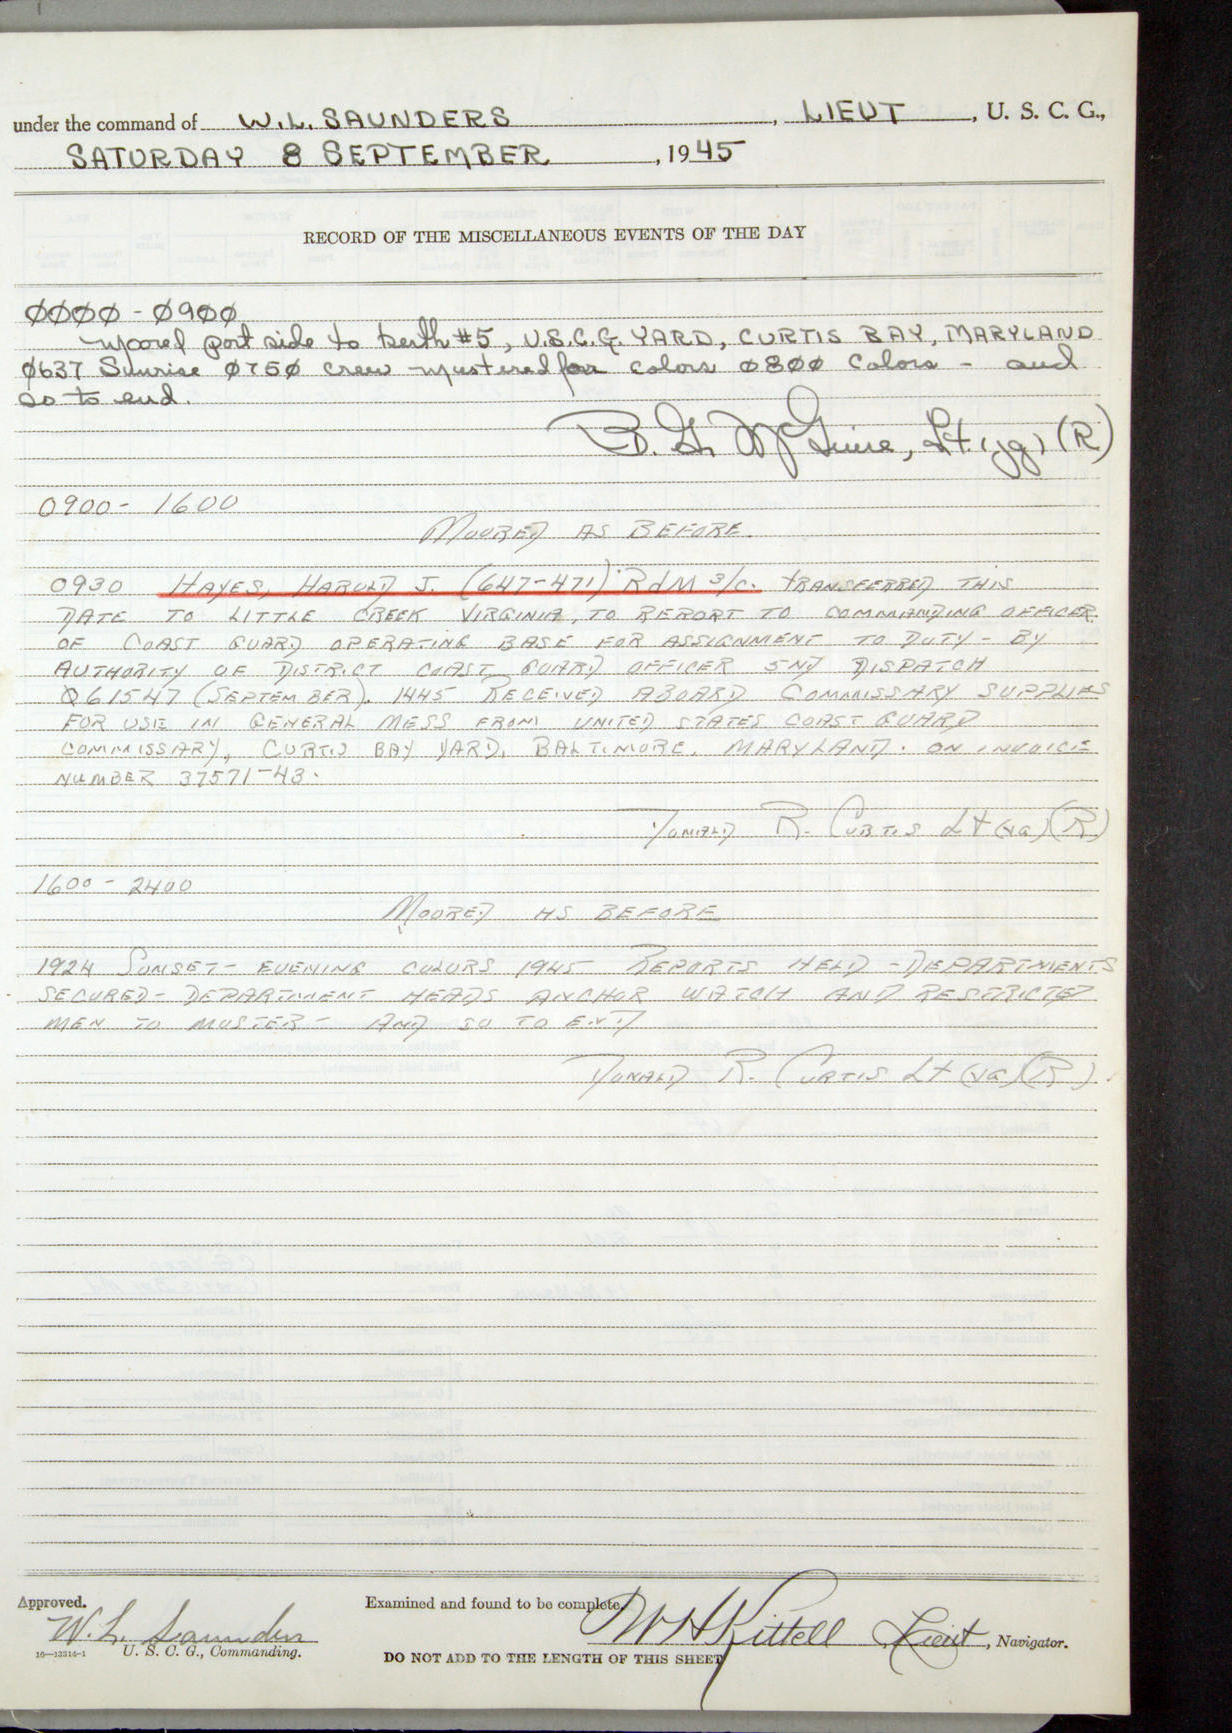 under the command of W. L. SAUNDERS, LIEUT, U. S. C. G.,
SATURDAY 8 SEPTEMBER, 1945
RECORD OF THE MISCELLANEOUS EVENTS OF THE DAY
0000 - 0900
Moored port side to berth #5, U.S.C.G. YARD, CURTIS BAY, MARYLAND
0637 Sunrise 0750 crew mustered for colors 0800 Colors - and
so to end.
B. G. McGuire, Lt. (jg) (R)
0900 - 1600
MOORED AS BEFORE.
0930 HAYES, HAROLD J. (647-471) RdM 3/c. TRANSFERRED THIS
DATE TO LITTLE CREEK VIRGINIA, TO REPORT TO COMMANDING OFFICER
OF COAST GUARD OPERATING BASE FOR ASSIGNMENT TO DUTY - BY
AUTHORITY OF DISTRICT COAST GUARD OFFICER 5ND DISPATCH
061547 (SEPTEMBER). 1445 RECEIVED ABOARD COMMISSARY SUPPLIES
FOR USE IN GENERAL MESS FROM UNITED STATES COAST GUARD
COMMISSARY, CURTIS BAY YARD, BALTIMORE, MARYLAND. ON INVOICE
NUMBER 37571-43.
DONALD R. CURTIS Lt (JG) (R)
1600 - 2400
MOORED AS BEFORE
1924 SUNSET - EVENING COLORS 1945 REPORTS HELD - DEPARTMENTS
SECURED - DEPARTMENT HEADS ANCHOR WATCH AND RESTRICTED
MEN TO MUSTER - AND SO TO END
DONALD R. CURTIS Lt (JG) (R)
Approved.
Examined and found to be complete.
W. L. Saunders
W H Kittell Lieut, Navigator.
U. S. C. G., Commanding.
16—13314-1
DO NOT ADD TO THE LENGTH OF THIS SHEET